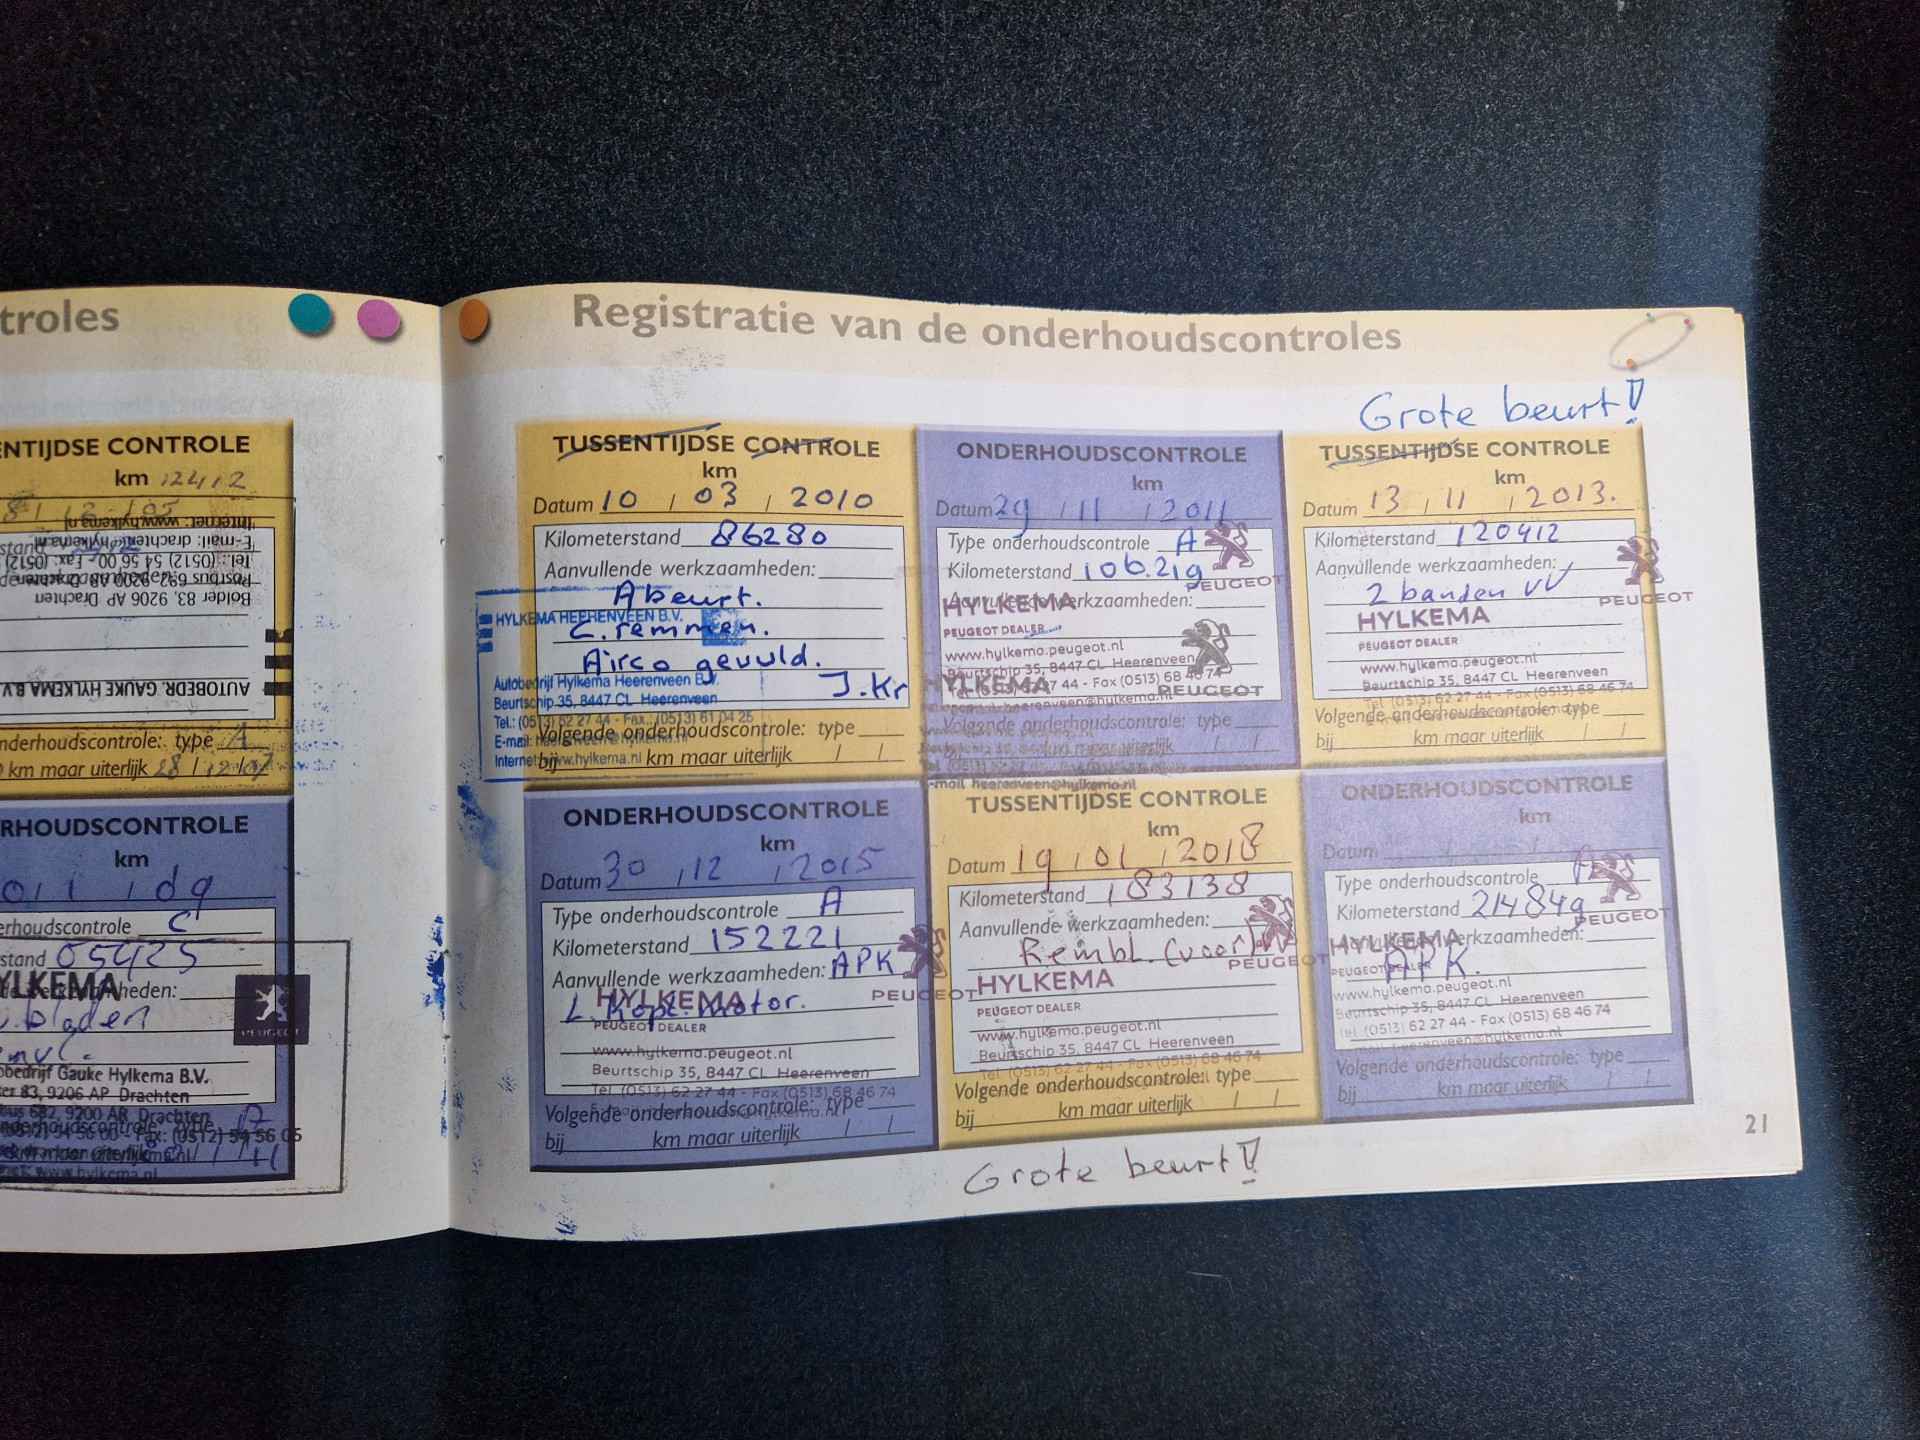 troles
NTIJDSE CONTROLE
km 12412
Internet: www.hylkema.nl
E-mail: drachten@hylkema.nl
Bolder 83, 9206 AP Drachten
AUTOBEDR. GAUKE HYLKEMA B.V.
nderhoudscontrole: type A
km maar uiterlijk 28 / 12 / 07
RHOUDSCONTROLE
km
erhoudscontrole C
stand
YLKEMA
heden:
bladen
PEUGEOT
obedrijf Gauke Hylkema B.V.
er 83, 9206 AP Drachten
bus 682, 9200 AR Drachten
Fax: (0512) 54 56 05
www.hylkema.nl
Registratie van de onderhoudscontroles
Grote beurt!
TUSSENTIJDSE CONTROLE
km
Datum 10 / 03 / 2010
Kilometerstand 86280
Aanvullende werkzaamheden:
A beurt.
HYLKEMA HEERENVEEN B.V.
C. remmen.
Airco gevuld.
J.Kr
Autobedrijf Hylkema Heerenveen B.V.
Beurtschip 35, 8447 CL Heerenveen
Tel.: (0513) 62 27 44 - Fax.: (0513) 61 04 25
Volgende onderhoudscontrole: type
E-mail: heerenveen@hylkema.nl
bij km maar uiterlijk / /
Internet: www.hylkema.nl
ONDERHOUDSCONTROLE
km
Datum 29 / 11 / 2011
Type onderhoudscontrole A
Kilometerstand 106.219
PEUGEOT
Aanvullende werkzaamheden:
HYLKEMA
PEUGEOT DEALER
www.hylkema.peugeot.nl
Beurtschip 35, 8447 CL Heerenveen
HYLKEMA
27 44 - Fax (0513) 68 46 74
PEUGEOT
heerenveen@hylkema.nl
Volgende onderhoudscontrole: type
km maar uiterlijk / /
e-mail heerenveen@hylkema.nl
TUSSENTIJDSE CONTROLE
km
Datum 13 / 11 / 2013.
Kilometerstand 120412
Aanvullende werkzaamheden:
2 banden VV
PEUGEOT
HYLKEMA
PEUGEOT DEALER
www.hylkema.peugeot.nl
Beurtschip 35, 8447 CL Heerenveen
Tel (0513) 62 27 44 - Fax (0513) 68 46 74
Volgende onderhoudscontrole: type
bij km maar uiterlijk / /
ONDERHOUDSCONTROLE
km
Datum 30 / 12 / 2015
Type onderhoudscontrole A
Kilometerstand 152221
Aanvullende werkzaamheden: APK
PEUGEOT
HYLKEMA
L. Kopl. motor.
PEUGEOT DEALER
www.hylkema.peugeot.nl
Beurtschip 35, 8447 CL Heerenveen
Tel (0513) 62 27 44 - Fax (0513) 68 46 74
Volgende onderhoudscontrole: type
bij km maar uiterlijk / /
TUSSENTIJDSE CONTROLE
km
Datum 19 / 01 / 2018
Kilometerstand 183138
Aanvullende werkzaamheden:
Rembl. (voor)
PEUGEOT
HYLKEMA
PEUGEOT DEALER
www.hylkema.peugeot.nl
Beurtschip 35, 8447 CL Heerenveen
Tel (0513) 62 27 44 - Fax (0513) 68 46 74
Volgende onderhoudscontrole: type
bij km maar uiterlijk / /
Grote beurt!
ONDERHOUDSCONTROLE
km
Datum
Type onderhoudscontrole
Kilometerstand 214849
PEUGEOT
Aanvullende werkzaamheden:
HYLKEMA
PEUGEOT DEALER
APK.
www.hylkema.peugeot.nl
Beurtschip 35, 8447 CL Heerenveen
Tel (0513) 62 27 44 - Fax (0513) 68 46 74
Volgende onderhoudscontrole: type
bij km maar uiterlijk / /
21